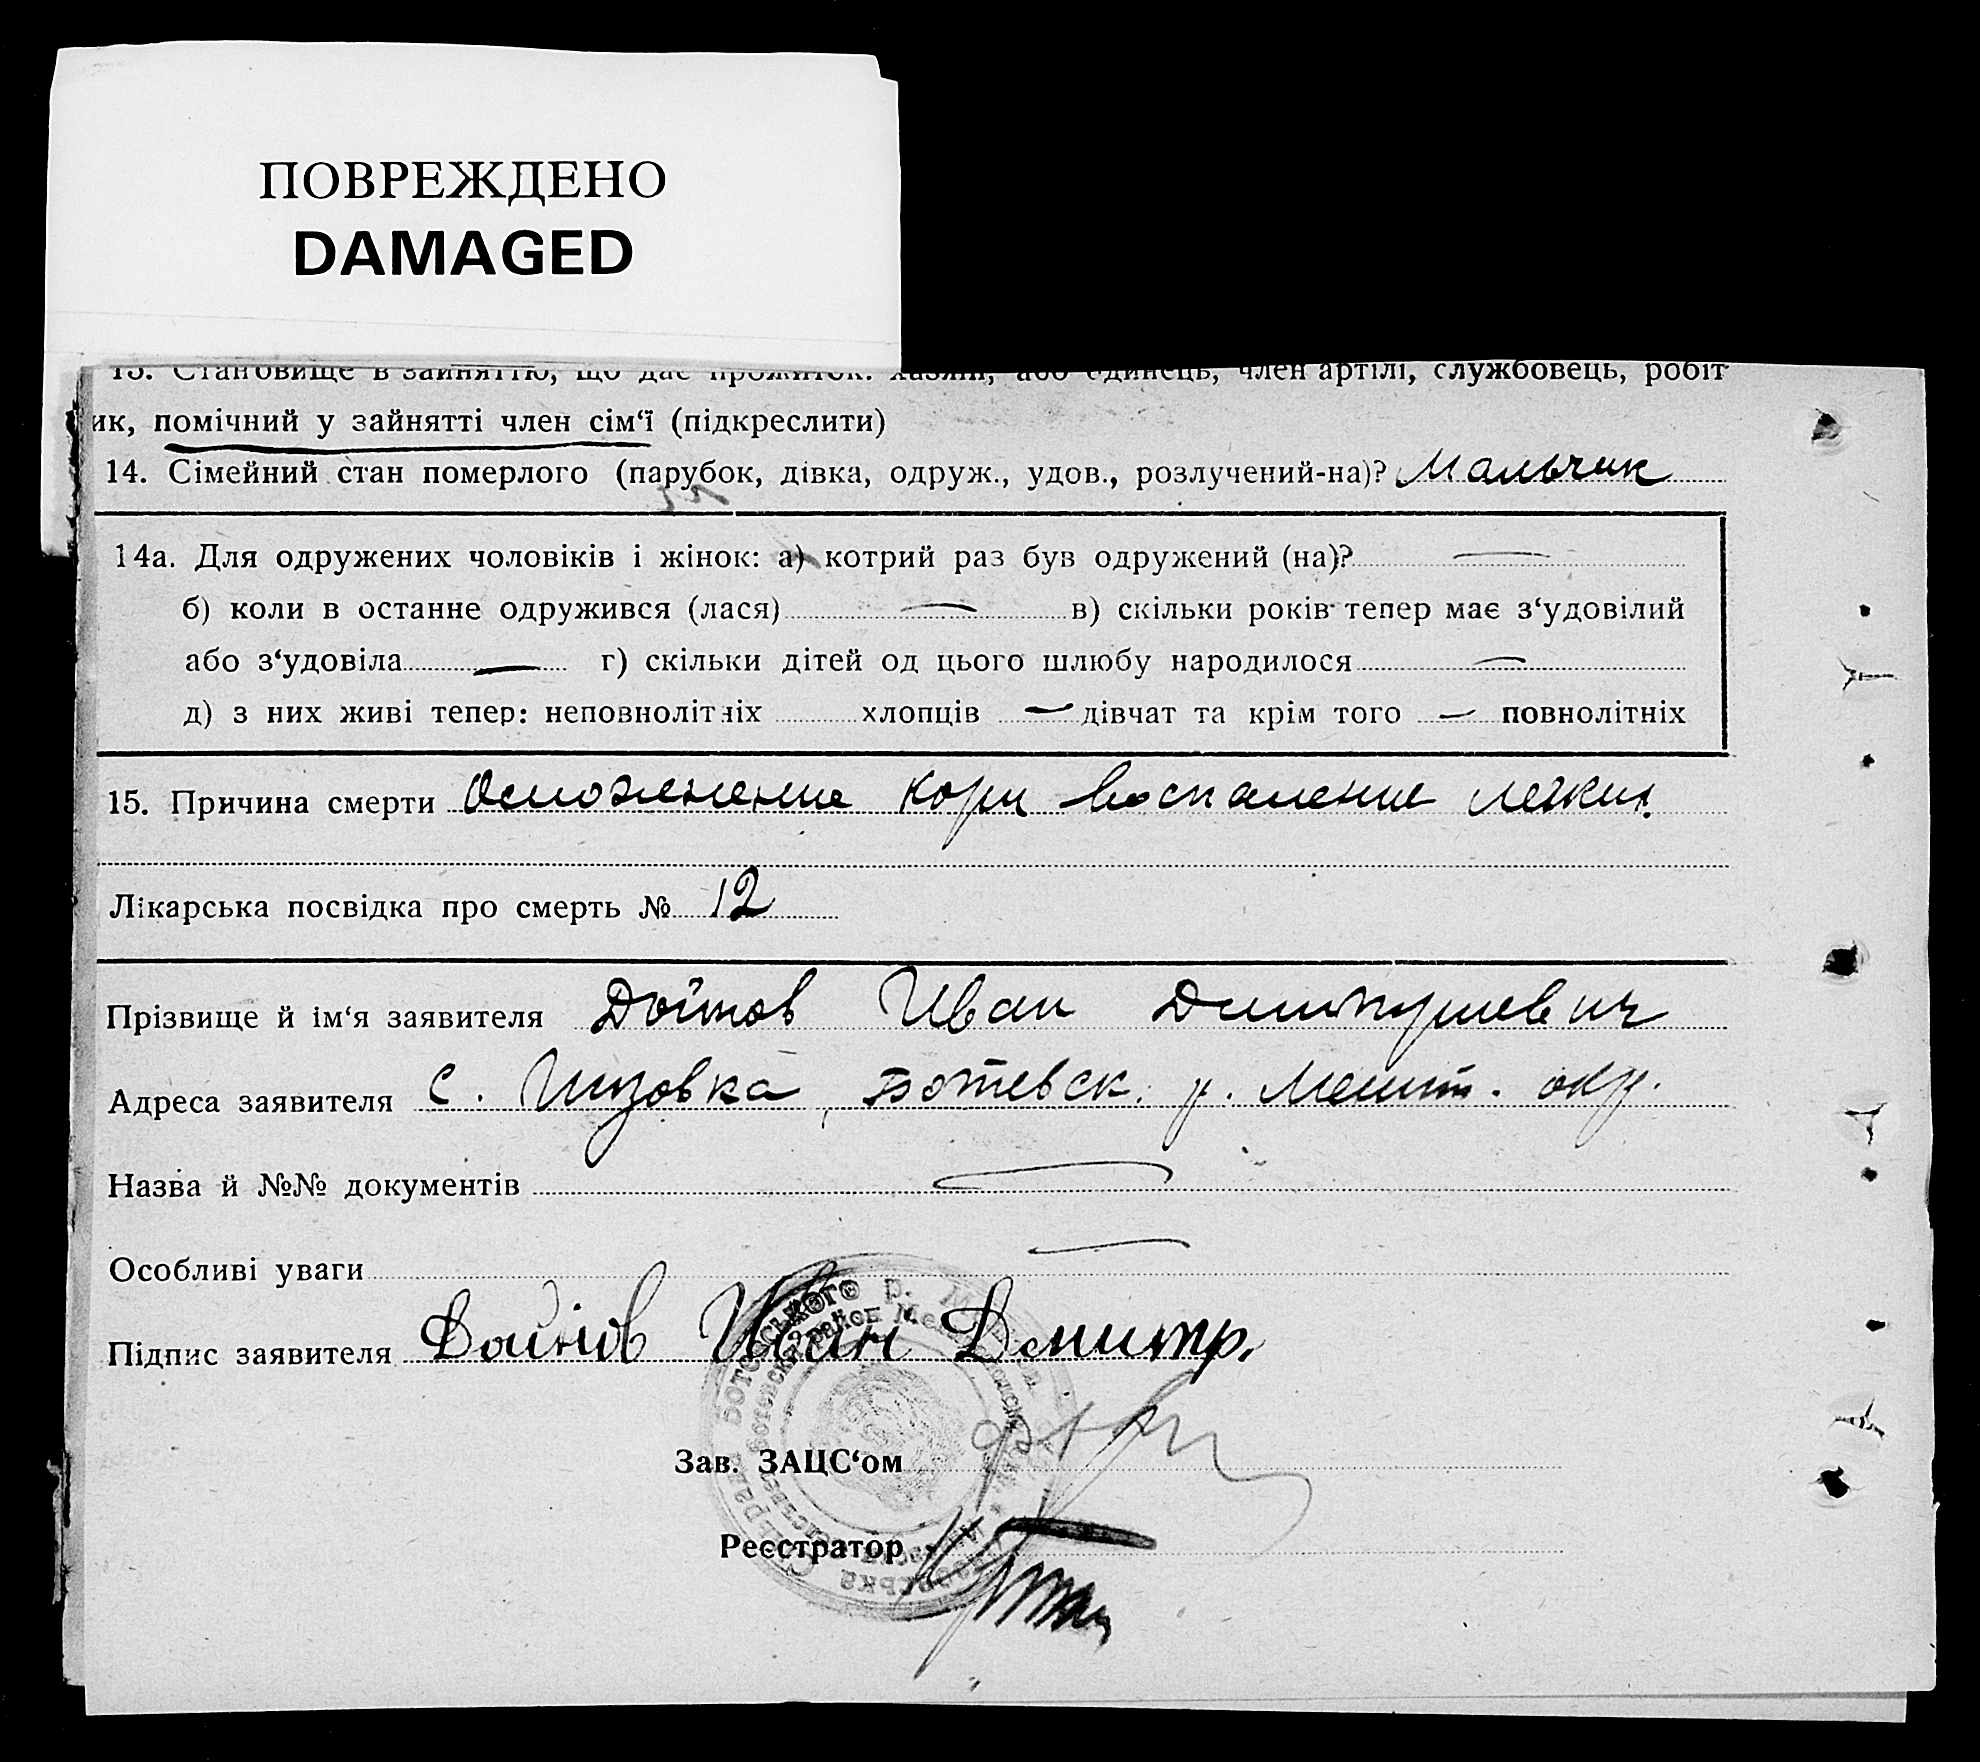 ПОВРЕЖДЕНО
DAMAGED
13. Становище в зайняттю, що дає прожиток: хазяїн, або одинець, член артілі, службовець, робіт
ик, помічний у зайнятті член сім‘ї (підкреслити)
14. Сімейний стан померлого (парубок, дівка, одруж., удов., розлучений-на)? Мальчик
14а. Для одружених чоловіків і жінок: а) котрий раз був одружений (на)? —
б) коли в останне одружився (лася) — в) скільки років тепер має з‘удовілий
або з‘удовіла — г) скільки дітей од цього шлюбу народилося —
д) з них живі тепер: неповнолітніх хлопців — дівчат та крім того — повнолітніх
15. Причина смерти Осложнение кори воспаление легких.
Лікарська посвідка про смерть № 12
Прізвище й ім‘я заявителя Дойнов Иван Димитриевич
Адреса заявителя с. Инзовка, Ботевск. р. Мелит. окр.
Назва й №№ документів —
Особливі уваги —
Підпис заявителя Дойнов Иван Дмитр.
Зав. ЗАЦС‘ом
Реєстратор